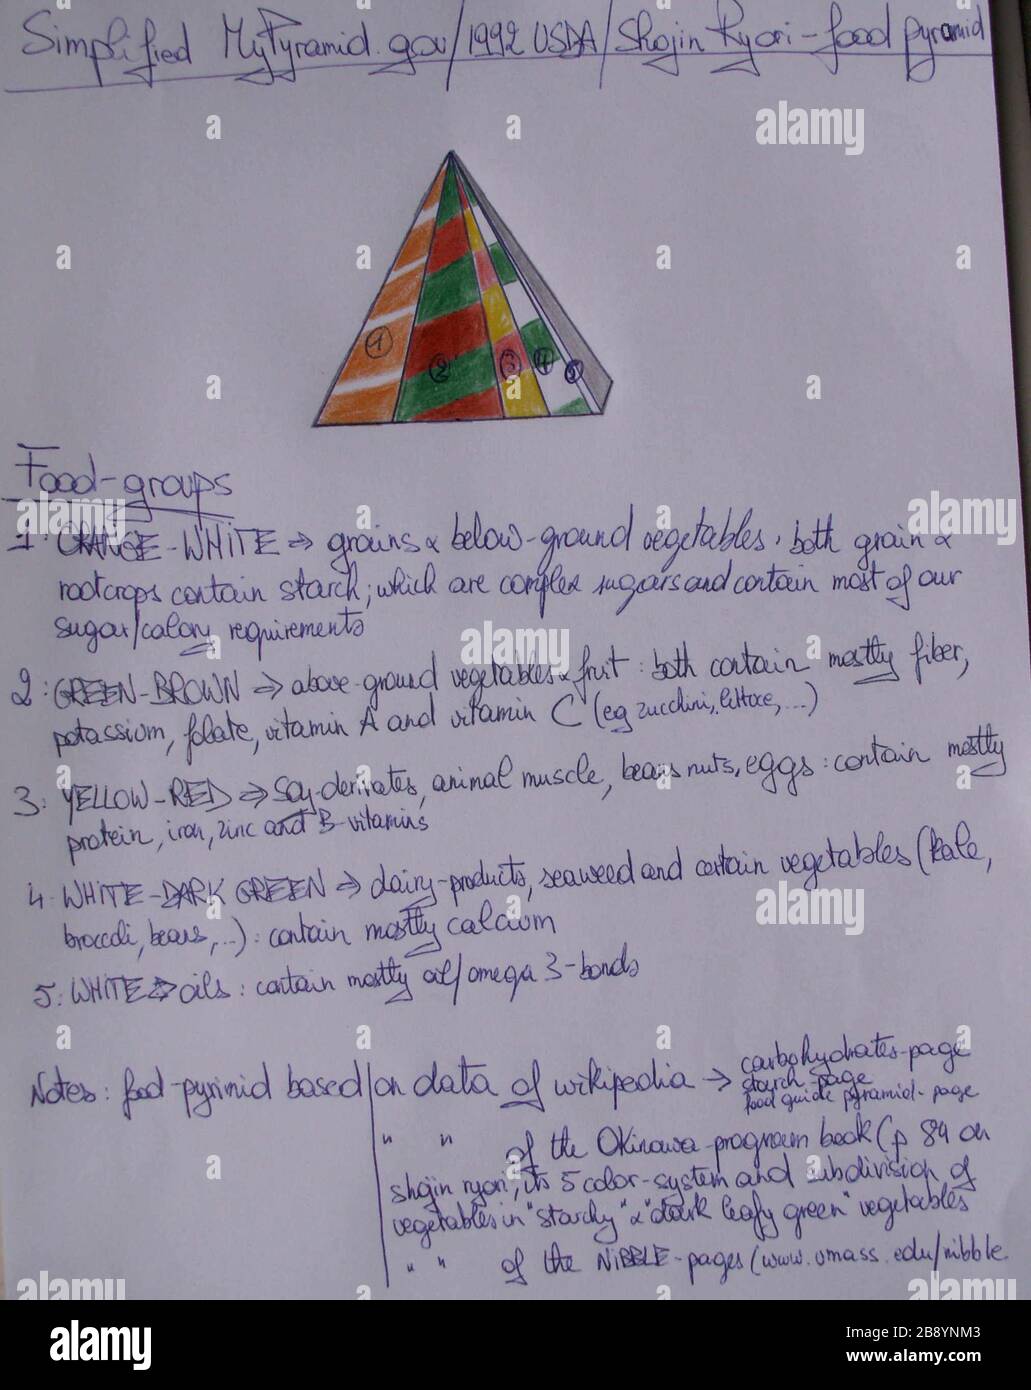 Simplified MyPyramid.gov/1992 USDA/Shojin Ryori-food pyramid
a a alamy
1 2 3 4 5
Food-groups
1: ORANGE-WHITE → grains & below-ground vegetables. both grain &
rootcrops contain starch; which are complex sugars and contain most of our
sugar/calory requirements
2: GREEN-BROWN → above-ground vegetables & fruit: both contain mostly fiber,
potassium, folate, vitamin A and vitamin C (eg zucchini, lettoce, ...)
3: YELLOW-RED → Soy-derivates, animal muscle, beans nuts, eggs: contain mostly
protein, iron, zinc and B-vitamins
4: WHITE-DARK GREEN → dairy-products, seaweed and certain vegetables (kale,
broccoli, beans, ...): contain mostly calcium
5: WHITE → oils: contain mostly oil/omega 3-bonds
Notes: food-pyrimid based on data of wikipedia → carbohydrates-page
starch page
food guide pyramid-page
" " of the Okinawa-program book (p 84 on
shojin ryori, its 5 color-system and subdivision of
vegetables in "starchy" & "dark leafy green" vegetables
" " of the NIBBLE-pages (www.umass.edu/nibble
alamy
Image ID: 2B8YNM3
www.alamy.com